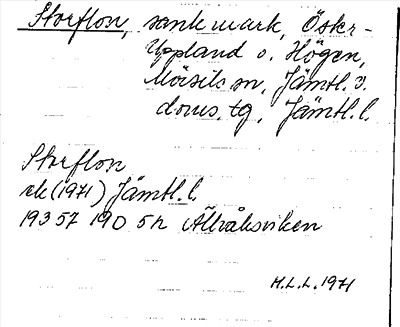 Storflon, sankmark, Öster-
Uppland o. Högen,
Mörsils sn, Jämtl. v.
doms. tg, Jämtl. l.
Storflon
ek (1971) Jämtl. l.
19357 190 5h Ällråksviken
H.L.L. 1971